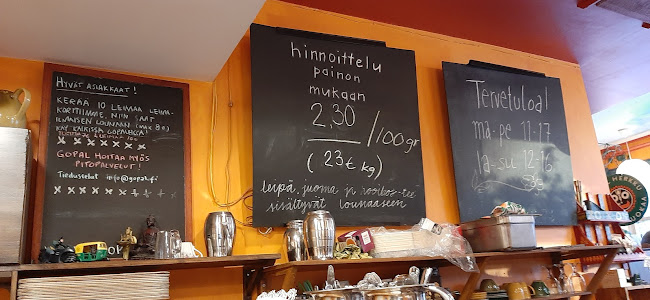 HYVÄT ASIAKKAAT!
KERÄÄ 10 LEIMAA LEIMA-
KORTTIIMME, NIIN SAAT
ILMAISEN LOUNAAN
KÄY KAIKISSA GOPALEISSA!
GOPAL HOITAA MYÖS
PITOPALVELUT!
Tiedustelut info@gopal.fi
hinnoittelu
painon
mukaan
2,30
/100gr
(23€ kg)
leipä, juoma ja rooibos-tee
sisältyvät lounaaseen
Tervetuloa!
ma-pe 11-17
la-su 12-16